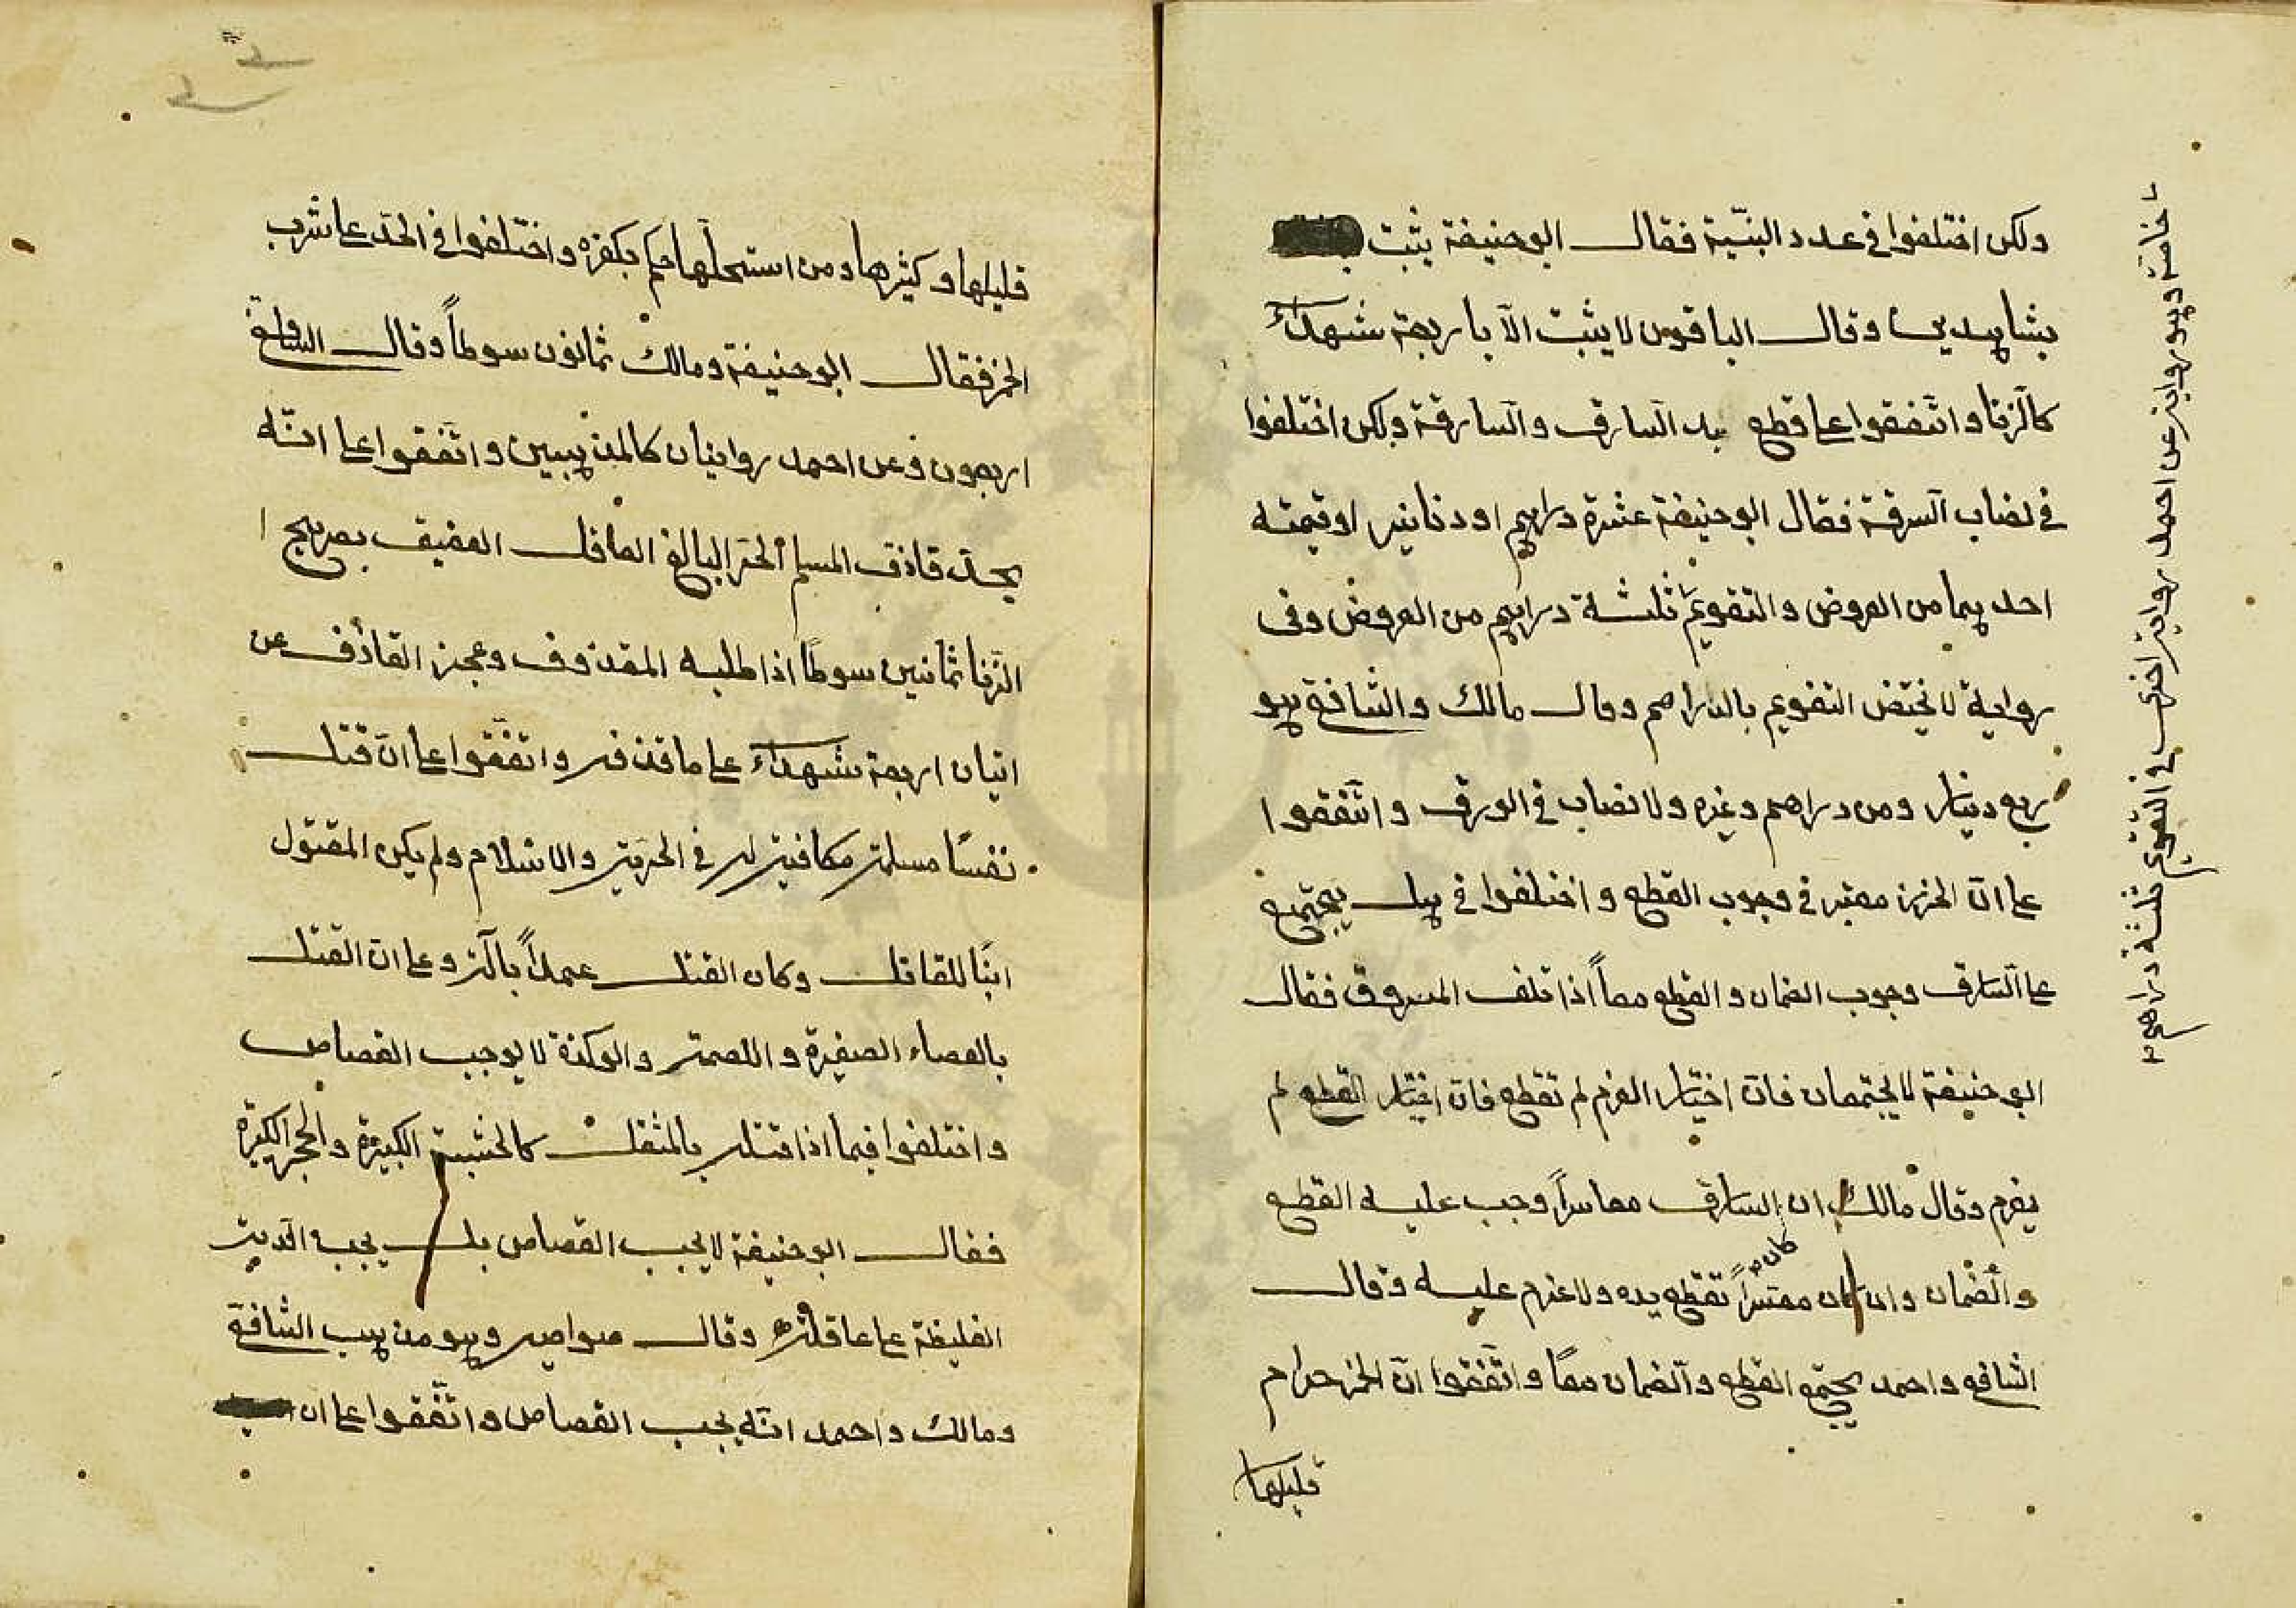 ولكن اختلفوا في عدد البنيّة فقال ابو حنيفة يثبت
بشاهدين وقال الباقون لا يثبت الّا باربعة شهداء
كالزنا واتّفقوا على قطع يد السارق والسارقة ولكن اختلفوا
في نصاب السرقة فقال ابو حنيفة عشرة دراهم او دنانير او قيمته
احدهما من العروض والتقويم ثلثة دراهم من العروض وفى
رواية لا يختص التقويم بالدراهم وقال مالك والشافع هو
ربع دينار ومن دراهم وغيره ولا نصاب في الورق واتّفقوا
على انّ الحرز معتبر في وجوب القطع واختلفوا في هل يجتمع
على السّارق وجوب الضمان والقطع معاً اذا تلف المسروق فقال
ابو حنيفة لا يجتمعان فان اختيار الغرم لم تقطع فان اختيار القطع لم
يغرم وقال مالك ان السّارق معاسراً وجب عليه القطع
والضمان وان كان معتسراً تقطع يده ولا غرم عليه وقال
كان
الشافع واحمد يجتمع القطع والضمان معًا واتّفقوا انّ الخمر حرام
قليلها
خاصة وهو رواية عن احمد رواية اخرى في التقويم ثلثة دراهم
قليلها وكثيرها ومن استحلّها حكم بكفره واختلفوا في الحدّ على شرب
الخمر فقال ابو حنيفة ومالك ثمانون سوطاً وقال الشافع
اربعون وعن احمد روايتان كالمذهبين واتّفقوا على انّه
يحدّ قاذف المسلم الحرّ البالغ العاقل العفيف بصريح
الزّنا ثمانين سوطًا اذا طلبه المقذوف وعجز القاذف عن
اتيان اربعة شهداء على ما قذفه واتّفقوا على انّ قتل
نفسًا مسلمة مكافية له في الحرّية والاسلام ولم يكن المقتول
ابنًا للقاتل وكان القتل عمداً بآلة وعلى انّ القتل
بالعصاء الصغيرة واللصمة والوكذة لا يوجب القصاص
واختلفوا فيما اذا قتله بالمثقل كالخشبة الكبيرة والحجر الكبيرة
فقال ابو حنيفة لا يجب القصاص بل يجب الدّية
الغليظة على عاقلته وقال صواحبه وهو مذهب الشافع
ومالك واحمد انّه يجب القصاص واتّفقوا على ان